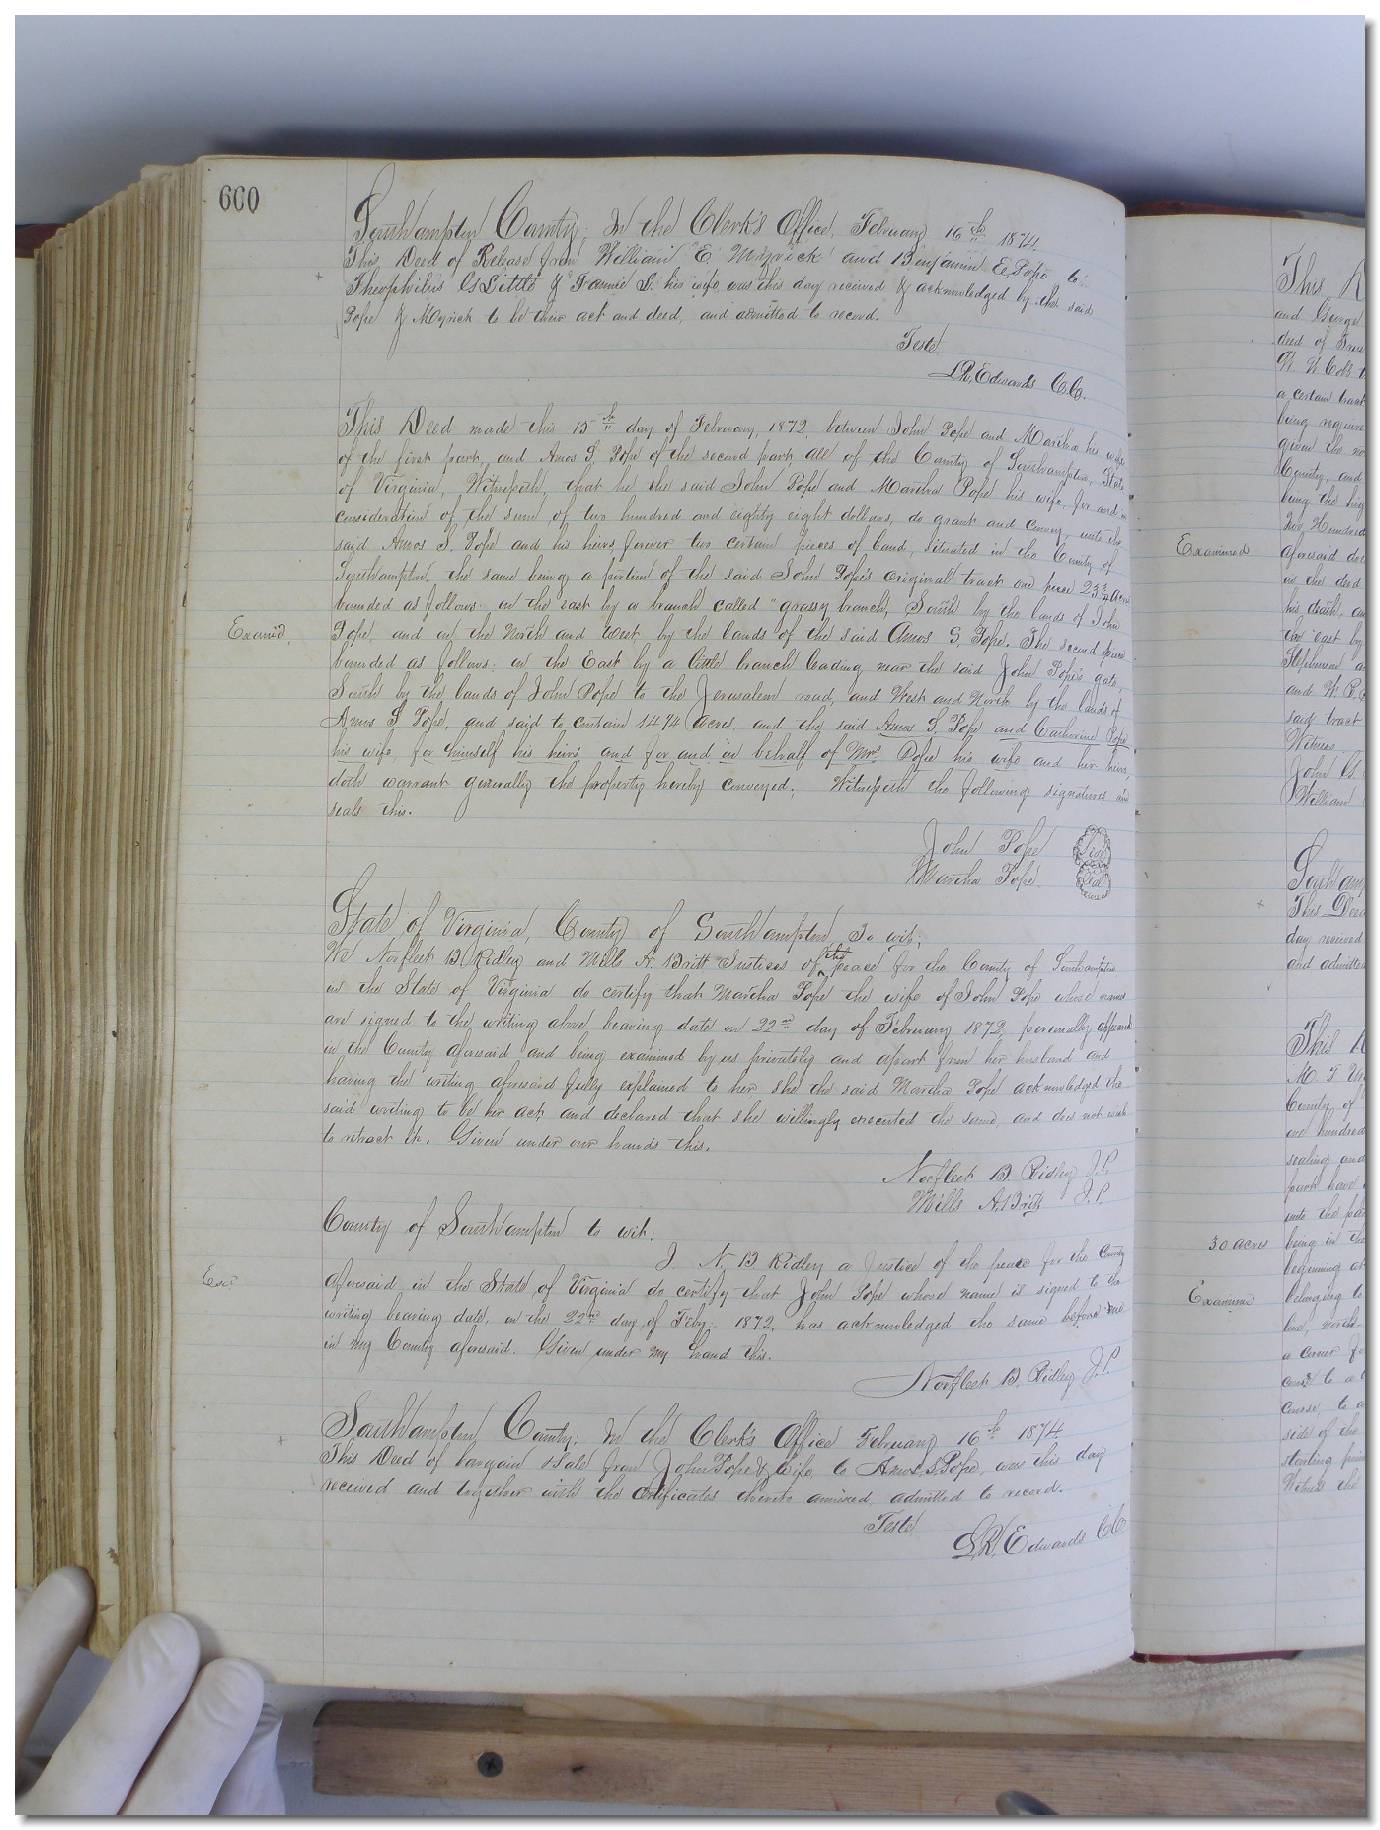 600
Southampton County; In the Clerk's Office, February 16th 1874.
This Deed of Release from William E. Myrick and Benjamin E. Pope to
Theophilus G Little & Fannie S. his wife was this day received & acknowledged by the said
Pope & Myrick to be their act and deed, and admitted to record.
Teste
L.R. Edwards C.C.
This Deed made this 15th day of February, 1872, between John Pope and Martha his wife
of the first part, and Amos S. Pope of the second part, all of the County of Southampton, State
of Virginia, Witnesseth, that he the said John Pope and Martha Pope his wife, for and in
consideration of the sum of two hundred and eighty eight dollars, do grant and convey, unto the
said Amos S. Pope and his heirs forever two certain pieces of land, situated in the County of
Southampton, the same being a portion of the said John Pope's original tract one piece 23 3/4 acres
bounded as follows: on the east by a branch called "grassy branch, South by the lands of John
Exam'd
Pope, and on the North and West by the lands of the said Amos S. Pope. The second piece
bounded as follows: on the East by a little branch leading near the said John Pope's gate,
South by the lands of John Pope to the Jerusalem road, and West and North by the lands of
Amos S Pope, and said to contain acres, and the said Amos S. Pope and Catharine Pope
his wife, for himself his heirs and for and in behalf of Mrs. Pope his wife and her heirs,
doth warrant generally the property hereby conveyed; Witnesseth the following signatures and
seals this.
John Pope Seal
Martha Pope Seal
State of Virginia, County of Southampton To wit;
We Norfleet B. Ridley and Mills A. Britt Justices of the peace for the County of Southampton
in the State of Virginia do certify that Martha Pope the wife of John Pope whose names
are signed to the writing above bearing date on 22nd day of February 1872, personally appeared
in the County aforesaid and being examined by us privately and apart from her husband and
having the writing aforesaid fully explained to her she the said Martha Pope acknowledged the
said writing to be her act and declared that she willingly executed the same, and does not wish
to retract it. Given under our hands this.
Norfleet B Ridley J.P.
Mills A. Britt J.P.
County of Southampton to wit.
I N. B Ridley a Justice of the peace for the County
aforesaid in the State of Virginia do certify that John Pope whose name is signed to the
writing bearing date, on the 22nd day of Feby. 1872, has acknowledged the same before me
in my County aforesaid. Given under my hand this.
Norfleet B. Ridley J.P.
Southampton County; In the Clerk's Office February 16th 1874
This Deed of bargain & Sale from John Pope & Wife to Amos S. Pope, was this day
received and together with the certificates thereto annexed, admitted to record.
Teste
L.R. Edwards CC
This
and George
deed of
a certain tract
being
given the
County, and
being the
Two Hundred
Examined
aforesaid
in the deed
his death,
the east by
Stephenson
and W. B.
said tract
Witness
John
William
Southam
This Deed
day received
and admitted
This
County of
one hundred
sealing and
part have
unto the
30 acres
being in the
beginning at
Examined
belonging to
line,
a corner
course, to a
side of the
starting
Witness the